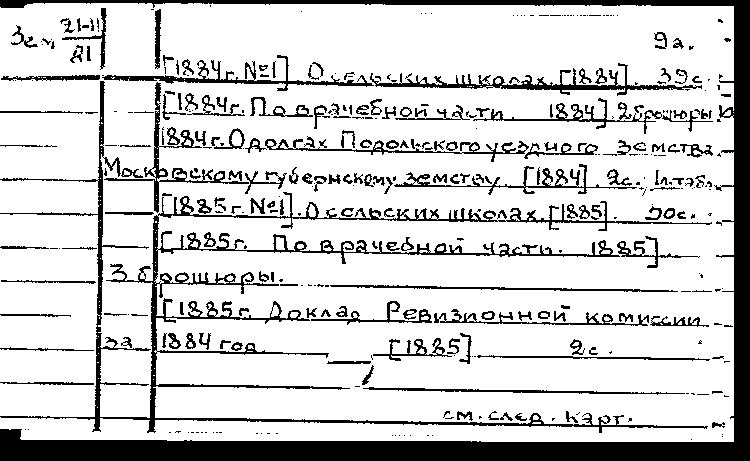 Зем. 21-11/21
9а.
[1884г. №1] О сельских школах. [1884]. 39с.
[1884г. По врачебной части. 1884]. 2 брошюры
1884г. О долгах Подольского уездного земства
Московскому губернскому земству. [1884]. 2с., 1л. табл.
[1885г. №1]. О сельских школах. [1885]. 50с.
[1885г. По врачебной части. 1885]
3 брошюры.
[1885г. Доклад Ревизионной комиссии
за 1884 год. [1885] 2с.
см. след. карт.